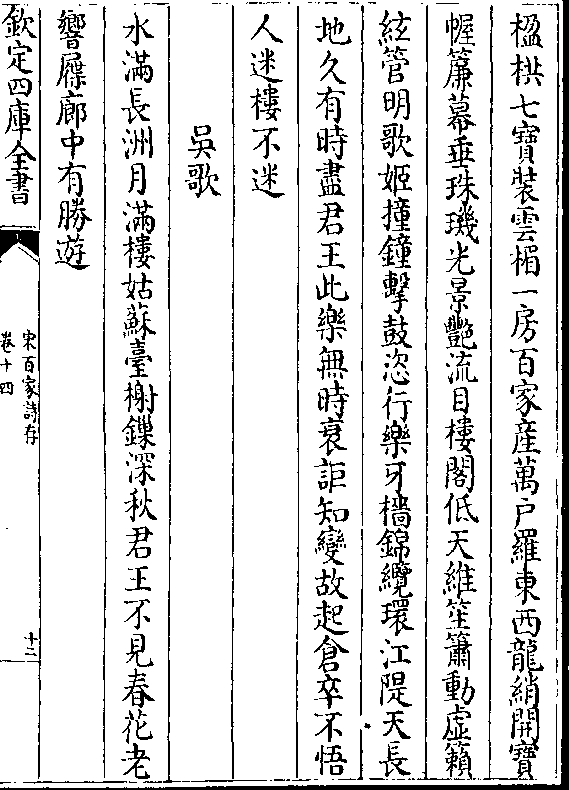 楹栱七寶裝雲楣一房百家産萬户羅東西龍綃開寶
幄簾幕垂珠璣光景艷流目樓閣低天維笙簫動虚籟
絃管明歌姬撞鐘擊鼓恣行樂牙檣錦纜環江隄天長
地久有時盡君王此樂無時衰詎知變故起倉卒不悟
人迷樓不迷
吳歌
水滿長洲月滿樓姑蘇臺榭鏁深秋君王不見春花老
響屧廊中有勝遊
欽定四庫全書
宋百家詩存
卷十四
十二